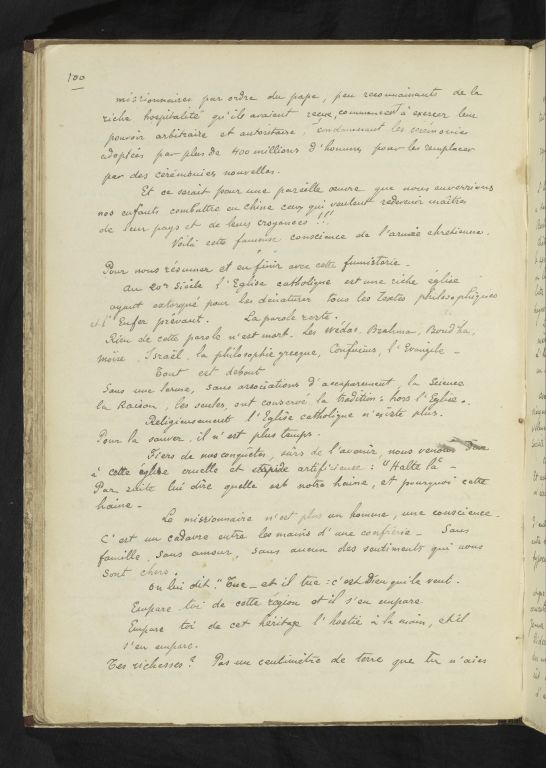 100
missionnaires par ordre du pape, peu reconnaissants de la
riche hospitalité qu'ils avaient reçue, commencent à exercer leur
pouvoir arbitraire et autoritaire, condamnant les cérémonies
adoptées par plus de 400 millions d'hommes pour les remplacer
par des cérémonies nouvelles.
Et ce serait pour une pareille œuvre que nous enverrions
nos enfants combattre en Chine ceux qui veulent redevenir maîtres
de leur pays et de leurs croyances !!!
Voilà cette fameuse conscience de l'armée chrétienne.
Pour nous résumer et en finir avec cette fumisterie.
Au 20e Siècle l'Eglise catholique est une riche église
ayant extorqué pour les dénaturer tous les textes philosophiques
et l'Enfer prévaut. La parole reste.
Rien de cette parole n'est mort. Les Védas, Brahma, Boudha,
Moïse, Israël, la philosophie grecque, Confucius, l'Evangile -
Tout est debout
Sans une larme, sans associations d'accaparement, la Science
la Raison, les seules, ont conservé la tradition : hors l'Eglise.
Religieusement l'Eglise catholique n'existe plus.
Pour la sauver, il n'est plus temps.
Fiers de nos conquêtes, sûrs de l'avenir, nous venons dire
à cette église cruelle et artificieuse : "Halte là" -
Par suite lui dire quelle est notre haine, et pourquoi cette
haine -
Le missionnaire n'est plus un homme, une conscience.
C'est un cadavre entre les mains d'une confrérie - Sans
famille, sans amour, sans aucun des sentiments qui nous
sont chers.
On lui dit : "Tue - et il tue : c'est Dieu qui le veut.
Empare-toi de cette région et il s'en empare
Empare toi de cet héritage l'hostie à la main, et il
s'en empare.
Tes richesses ? Pas un centimètre de terre que tu n'aies